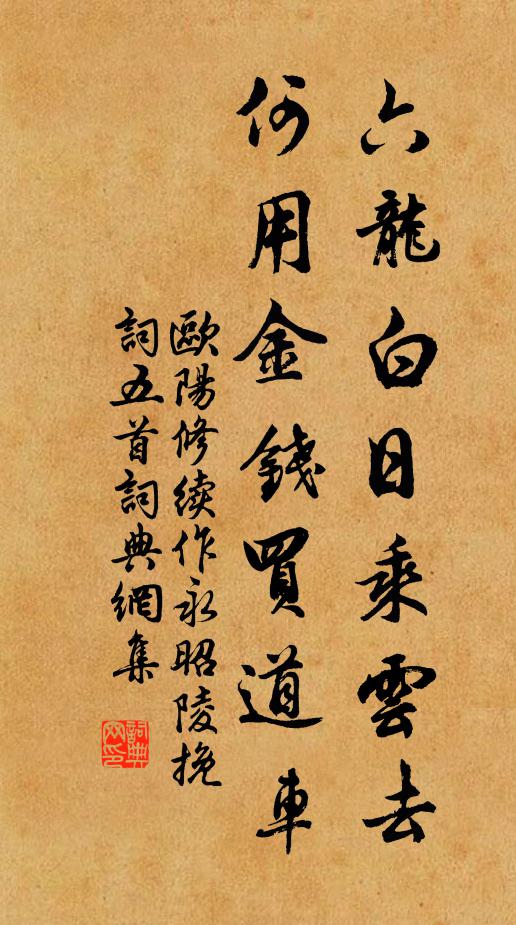 六龍白日乘雲去
何用金錢買道車
歐陽修续作永昭陵挽
詞五首詞典網集
詞典網印